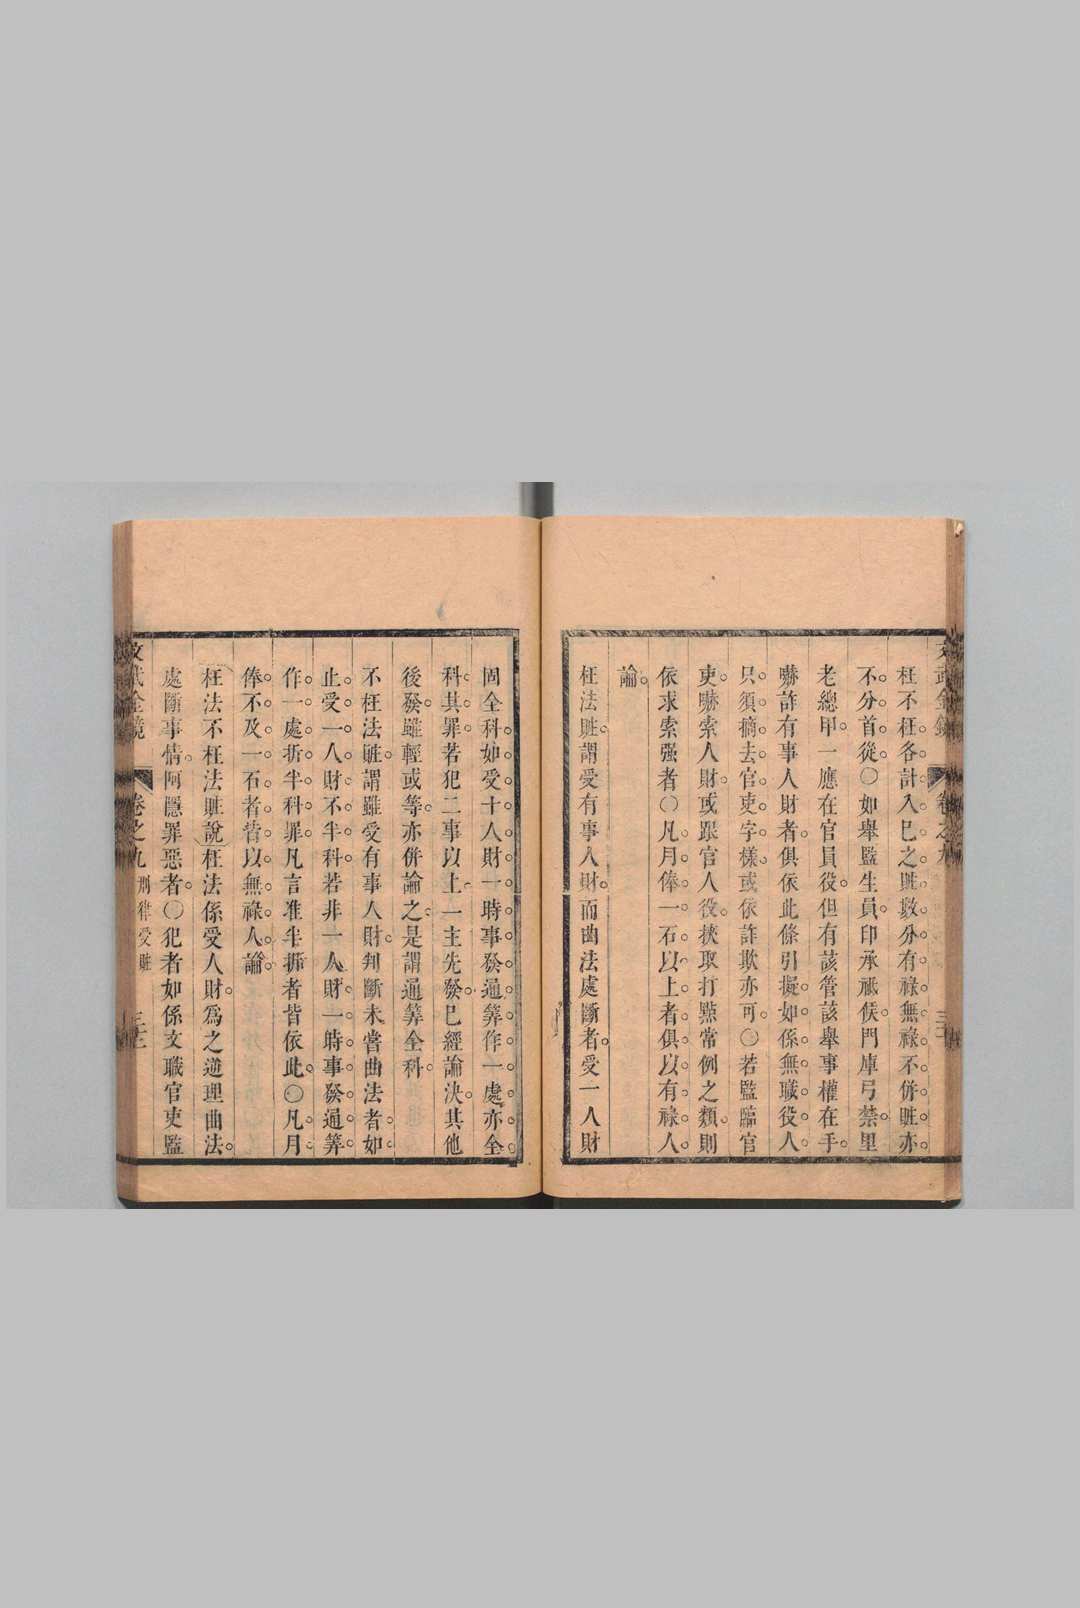 枉不枉各計入巳之賍數分有祿無祿不併賍亦
不分首從〇如舉監生員印承祗候門庫弓禁里
老總甲一應在官員役但有該管該舉事權在手
嚇詐有事人財者俱依此條引擬如係無職役人
只須摘去官吏字樣或依詐欺亦可〇若監臨官
吏嚇索人財或跟官人役挾取打㸃常例之類則
依求索强者〇凡月俸一石以上者俱以有祿人
論
枉法賍謂受有事人財而曲法處斷者受一人財
固全科如受十人財一時事發通筭作一處亦全
科其罪若犯二事以上一主先發巳經論決其他
後發雖輕或等亦併論之是謂通筭全科
不枉法賍謂雖受有事人財判斷未嘗曲法者如
止受一人財不半科若非一人財一時事發通筭
作一處折半科罪凡言准半折者皆依此〇凡月
俸不及一石者皆以無祿人論
枉法不枉法賍説枉法係受人財爲之遊理曲法
處斷事情阿隱罪惡者〇犯者如係文職官吏監
文武全鏡 卷之九 刑律受賍 三十三